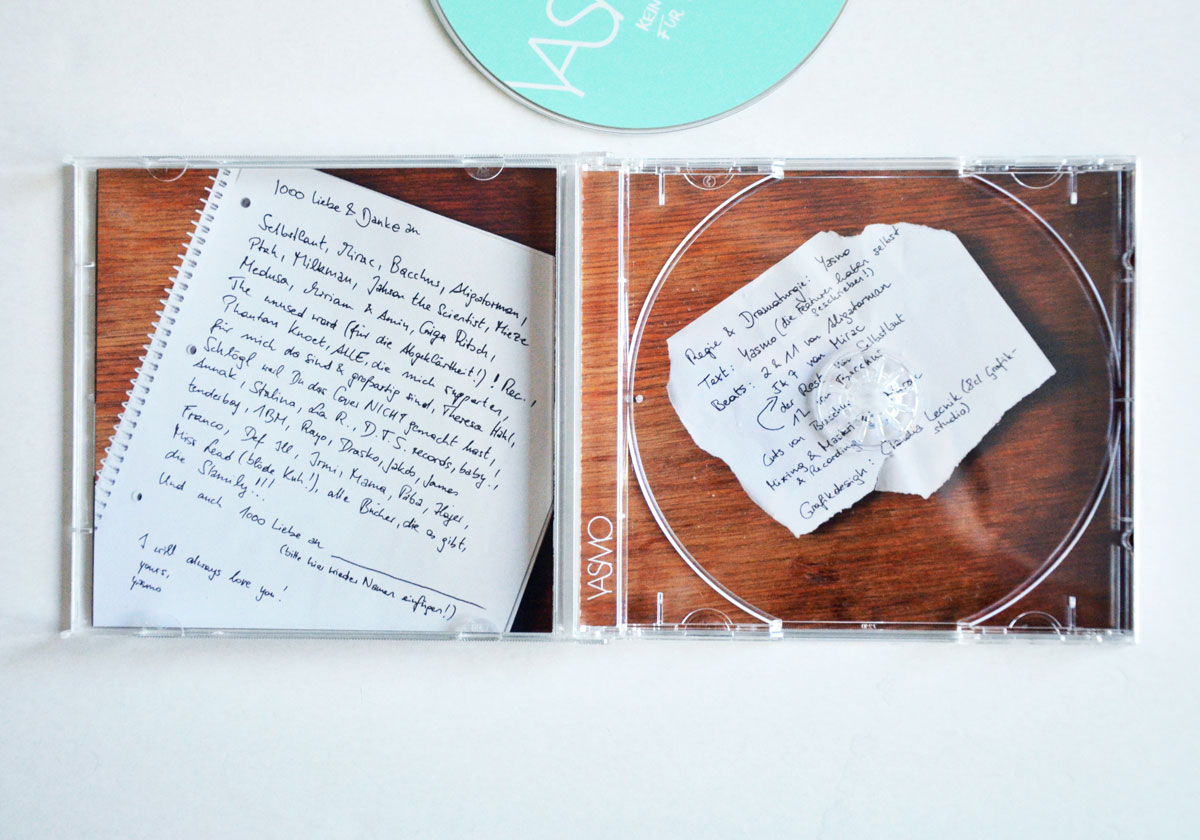 YAS
KEIN
FÜR
1000 Liebe & Danke an
Selbstlaut, Mirac, Bacchus, Aligatorman,
Ptah, Milkman, Jahson the Scientist, Mieze
Medusa, Miriam & Amin, Giga Ritsch,
The unused word (für die Abgeklärtheit!)! Rec.,
Phantom Knoet, ALLE, die mich supporten,
für mich da sind & großartig sind, Theresa
Schlögl weil Du das Cover NICHT gemacht hast,
Annak, Stalina, Lia R., D.T.S. records, baby!,
tenderboy, 1BM, Rayo, Drasko, Jakob, James
Franco, Def Ill, Irmi, Mama, Papa,
Miss Read (blöde Kuh!), alle Bücher, die es gibt,
die Slamily!!!
Und auch 1000 Liebe an
(bitte hier wieder Namen einfügen!)
I will always love you!
yours,
yasmo
YASMO
Regie & Dramaturgie: Yasmo
Text: Yasmo (die Features haben selbst
geschrieben!)
Beats: 2 & 11 von Aligatorman
5 & 7 von Mirac
der Rest von Selbstlaut
12 von Bacchus
Cuts von
Mixing &
& Recording
Grafikdesign: Claudia (Grafik-
studio)